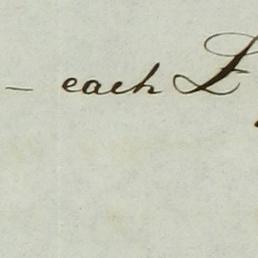 — each £